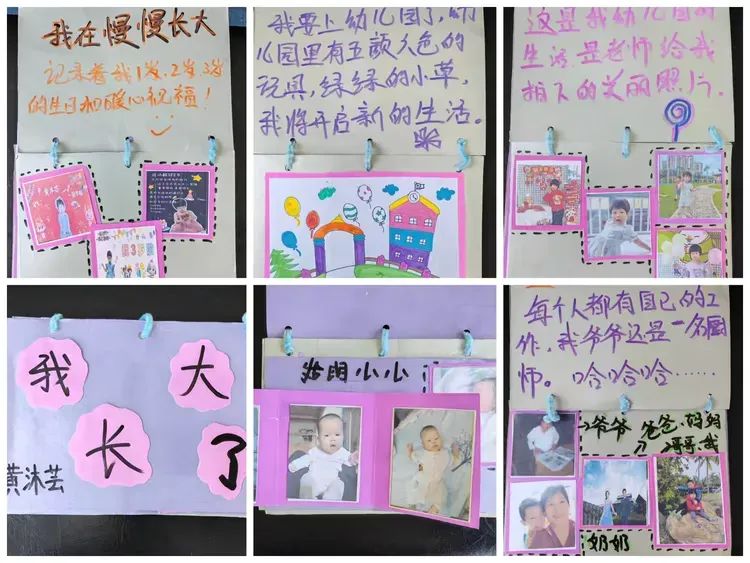 我在慢慢长大
记录着我1岁、2岁、3岁
的生日和暖心祝福!
我要上幼儿园了,幼
儿园里有五颜六色的
玩具,绿绿的小草,
我将开启新的生活。
这是我幼儿园的
生活是老师给我
拍下的美丽照片。
我
大
长
了
黄沐芸
小小
每个人都有自己的工
作,我爷爷还是一名厨
师。哈哈哈……
→爷爷
爸爸、妈妈
哥哥、我
奶奶